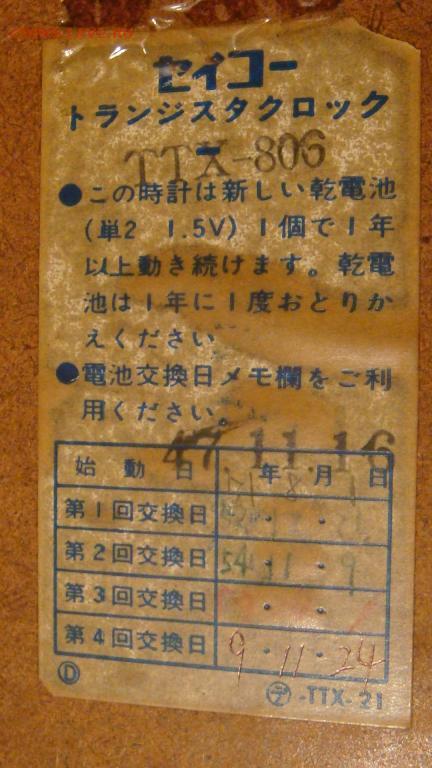 セイコー
トランジスタクロック
TTX-806
●この時計は新しい乾電池
(単2 1.5V)1個で1年
以上動き続けます。乾電
池は1年に1度おとりか
えください
●電池交換日メモ欄をご利
用ください。
47.11.16
始動日 年 月 日
第1回交換日
第2回交換日 54.11.9
第3回交換日
第4回交換日 9.11.24
D
デ-TTX-21